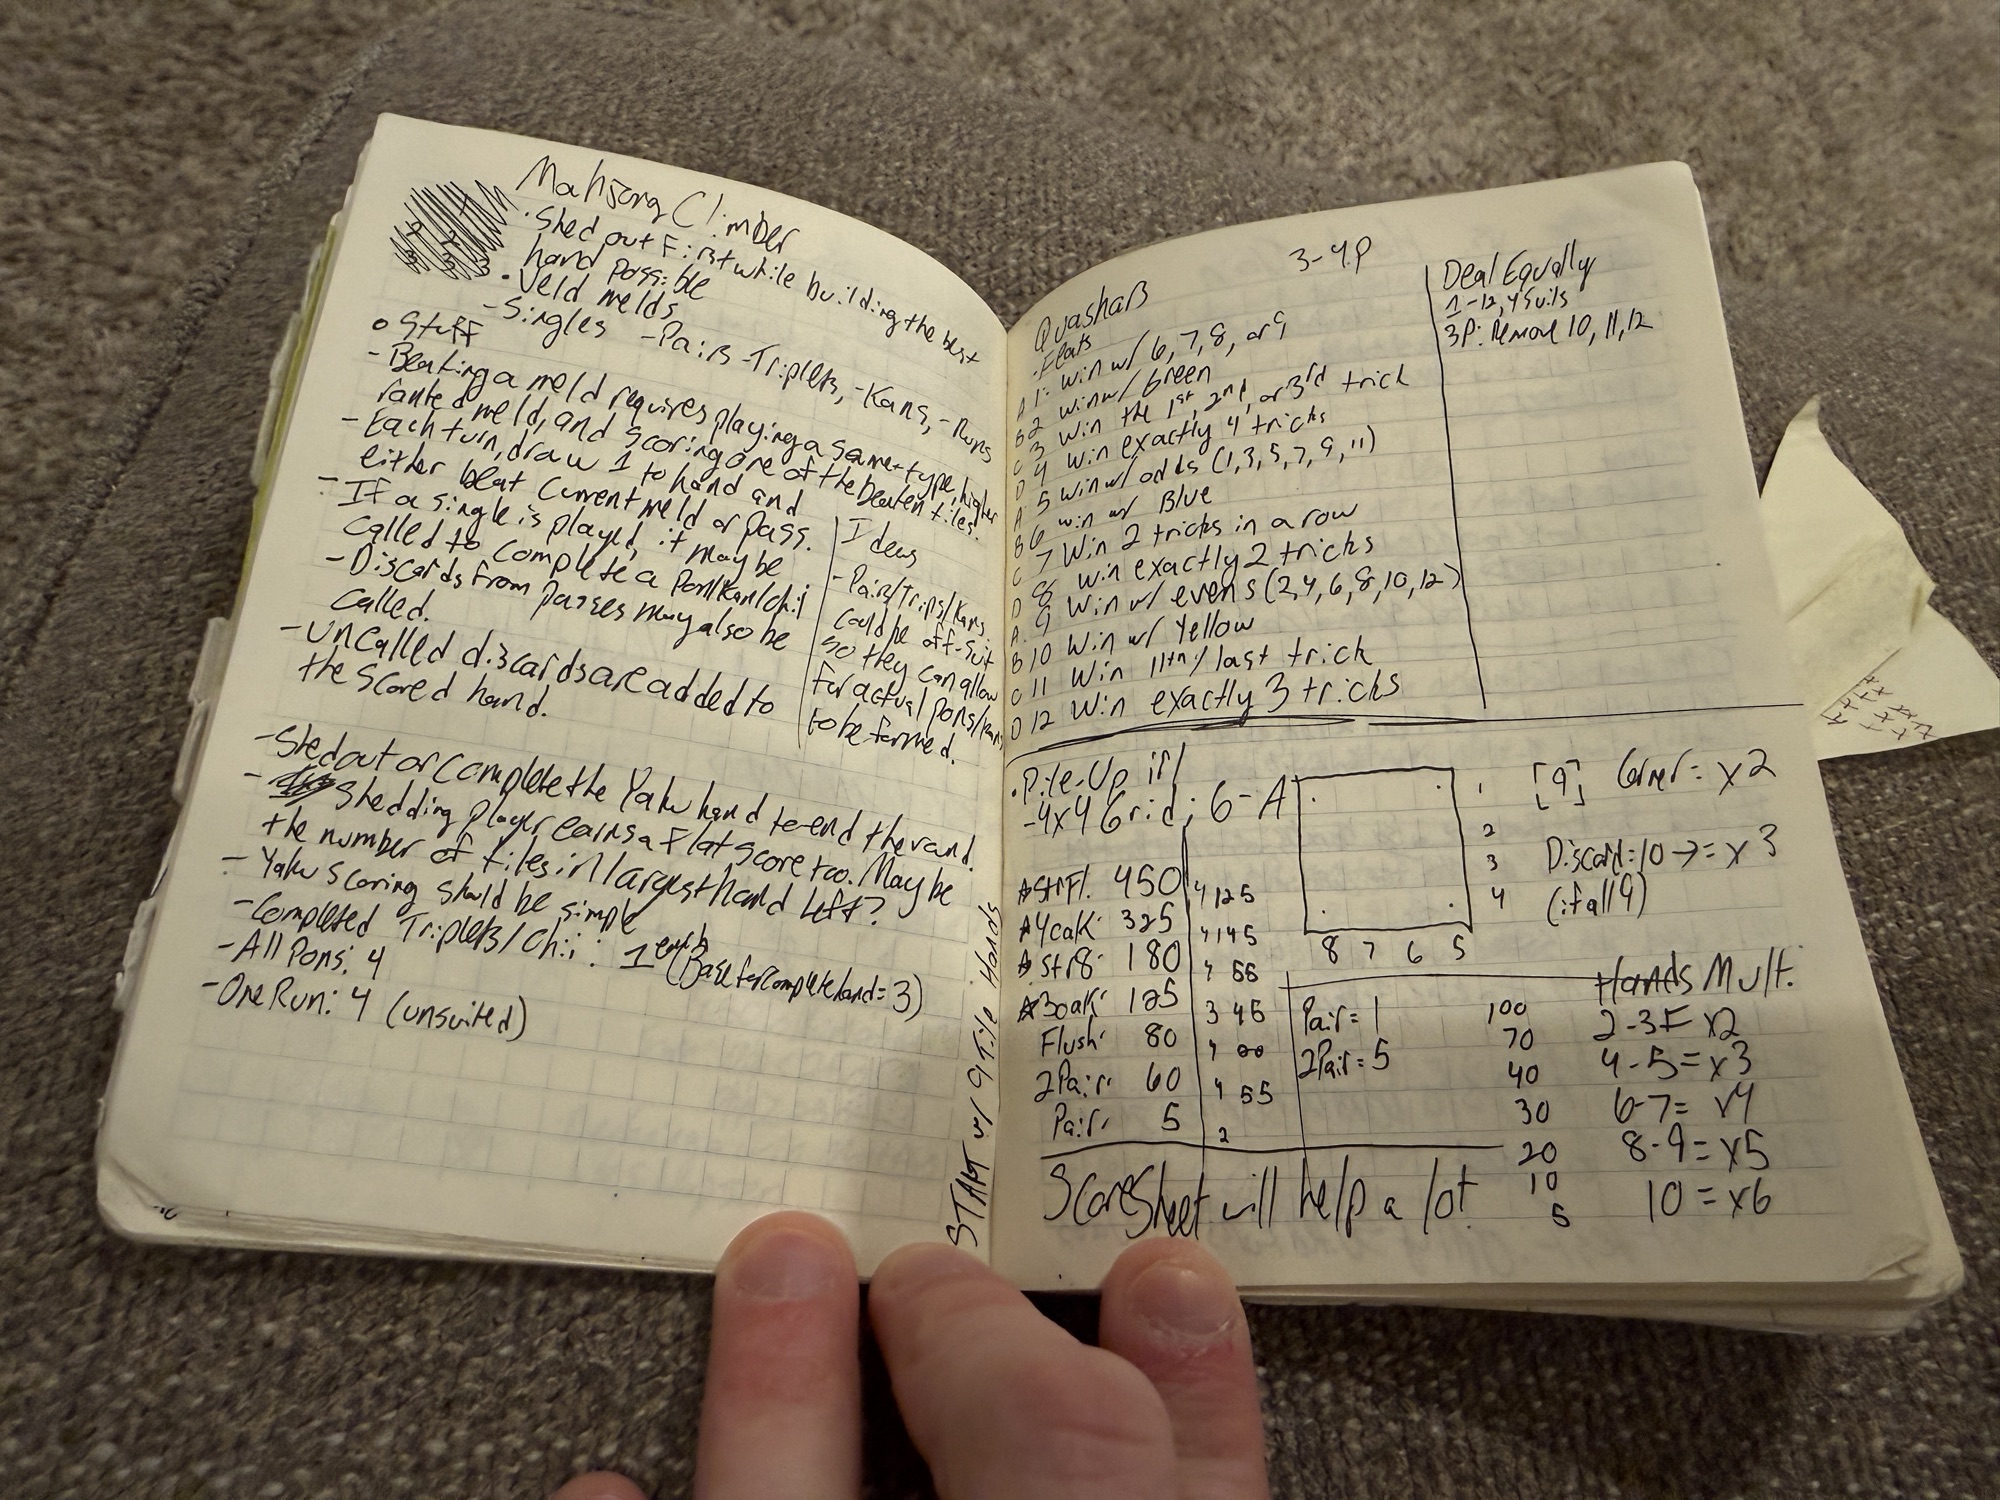 Mahjong Climber
· Shed out First while building the best
hand possible
· Veld melds
- Singles - Pairs - Triplets, - Kans, - Runs
o Stuff
- Beating a meld requires playing a same-type, higher
ranked meld, and scoring one of the beaten tiles.
- Each turn, draw 1 to hand and
either beat current meld or pass.
- If a single is played, it may be
called to complete a Pon/Kan/Chii
- Discards from passes may also be
called.
- Uncalled discards are added to
the scored hand.
Ideas
- Pairs/Trips/Kans
could be off-suit
so they can allow
for actual pons/kans
to be formed.
- Shed out or complete the Yaku hand to end the round.
- Shedding player earns a flat score too. Maybe
the number of tiles in largest hand left?
- Yaku scoring should be simple
- Completed Triplets/Chii: 1 each (Base for complete hand = 3)
- All Pons: 4
- One Run: 4 (unsuited)
START w/ 9 Tile Hands
Quashars
3-4P
· Feats
A 1: win w/ 6, 7, 8, or 9
B 2 win w/ Green
C 3 Win the 1st, 2nd, or 3rd trick
D 4 Win exactly 4 tricks
A 5 win w/ odds (1, 3, 5, 7, 9, 11)
B 6 win w/ Blue
C 7 Win 2 tricks in a row
D 8 Win exactly 2 tricks
A 9 Win w/ evens (2, 4, 6, 8, 10, 12)
B 10 Win w/ Yellow
C 11 Win 11th/last trick
D 12 Win exactly 3 tricks
Deal Equally
1-12, 4 Suits
3P: Remove 10, 11, 12
· Pile-Up irl
- 4x4 Grid; 6-A
1
2
3
4
8 7 6 5
[9] Corner = x2
Discard = 10 -> = x3
(if all 9)
☆ StrFl. 450 4 125
☆ 4oaK: 325 4 145
☆ Str8: 180 4 55
☆ 3oaK: 125 3 45
Flush: 80 4 00
2Pair: 60 4 55
Pair: 5 2
Pair = 1
2Pair = 5
100
70
40
30
20
10
5
Hands Mult.
2-3 = x2
4-5 = x3
6-7 = x4
8-9 = x5
10 = x6
ScoreSheet will help a lot